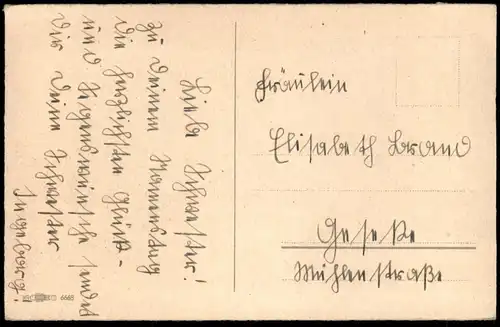 Liebe Schwester!
zu Deinem Namenstag
die herzlichsten Glück-
und Segenswünsche sendet
Dir Deine Schwester
Ingeborg!
Fräulein
Elisabeth Brand
Geseke
Mühlenstraße
6665